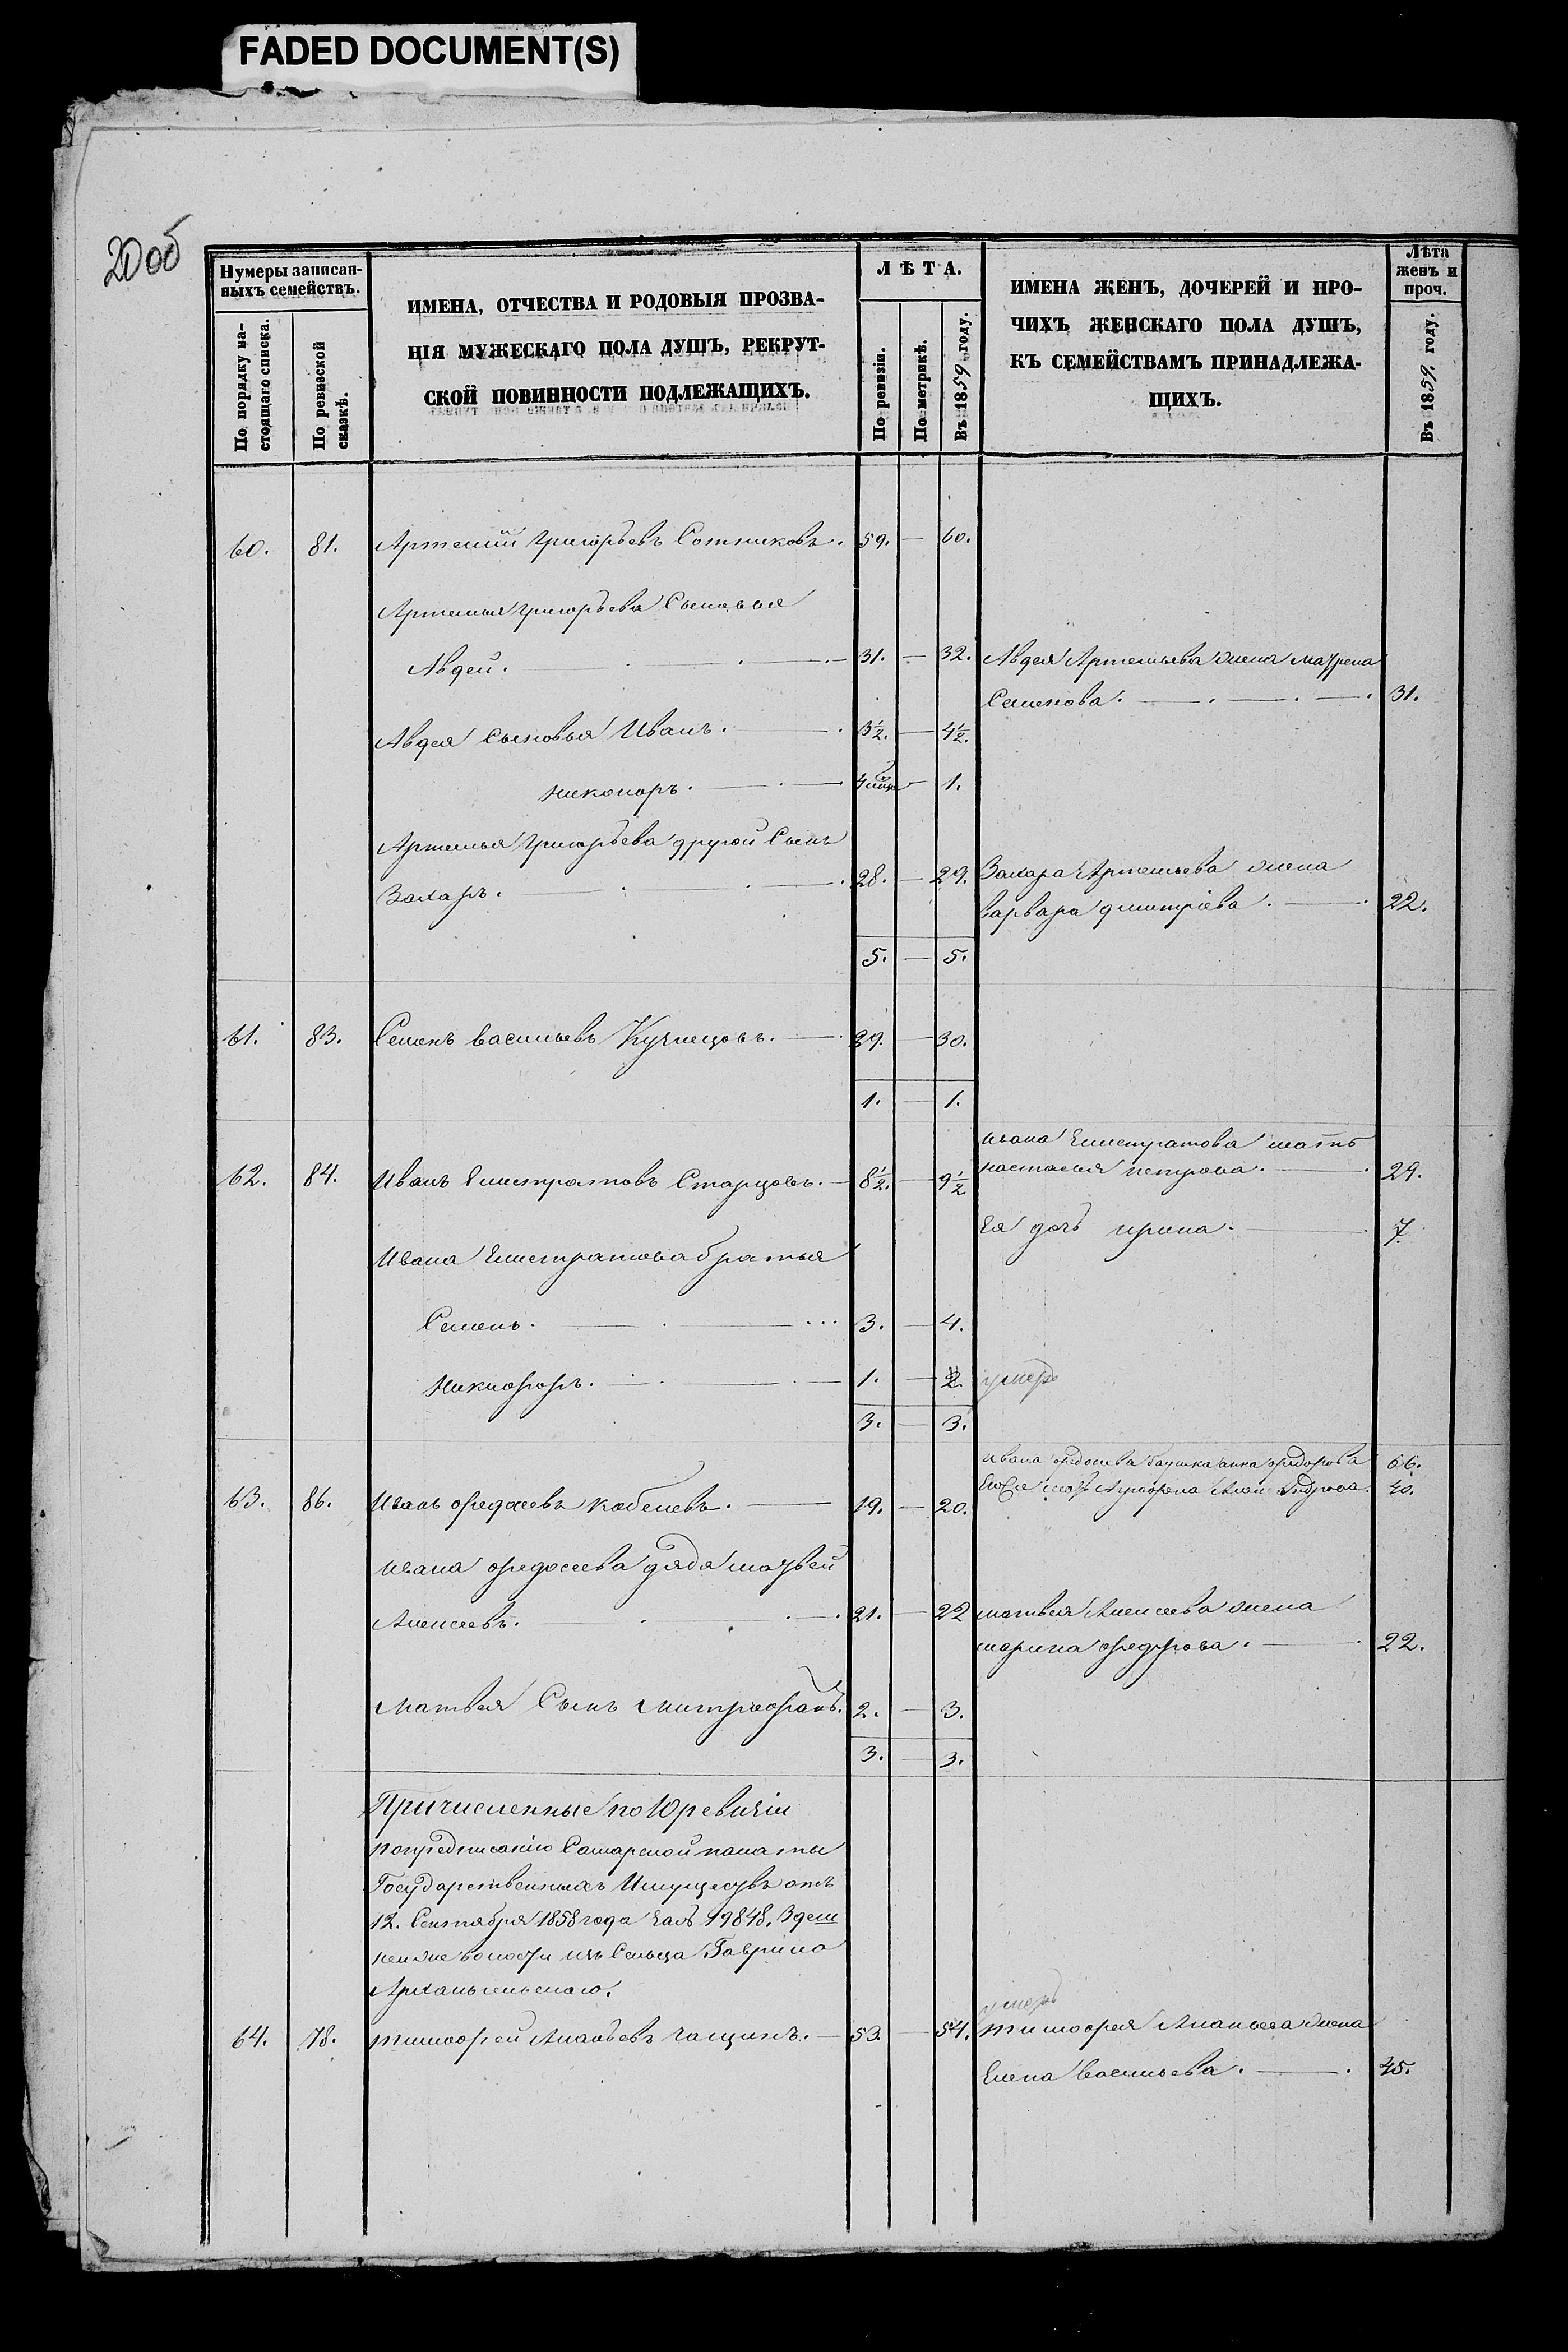 FADED DOCUMENT(S)
20 об
Нумеры записан-
ныхъ семействъ.
По порядку на-
стоящаго списка.
По ревизской
сказкѣ.
ИМЕНА, ОТЧЕСТВА И РОДОВЫЯ ПРОЗВА-
НІЯ МУЖЕСКАГО ПОЛА ДУШЪ, РЕКРУТ-
СКОЙ ПОВИННОСТИ ПОДЛЕЖАЩИХЪ.
ЛѢТА.
По ревизіи.
По метрикѣ.
Въ 1859 году.
ИМЕНА ЖЕНЪ, ДОЧЕРЕЙ И ПРО-
ЧИХЪ ЖЕНСКАГО ПОЛА ДУШЪ,
КЪ СЕМЕЙСТВАМЪ ПРИНАДЛЕЖА-
ЩИХЪ.
Лѣта
женъ и
проч.
Въ 1859. году.
60. 81. Артемій Григорьевъ Сотниковъ. 59. — 60.
Артемья Григорьева Сыновья
Авдей. 31. — 32. Авдея Артемьева жена матрена
Семенова. 31.
Авдея Сыновья Иванъ. 3½. — 4½.
Никоноръ. 4 — 1.
Артемья Григорьева другой Сынъ
Захаръ. 28. — 29. Захара Артемьева жена
варвара дмитріева. 22.
5. — 5.
61. 83. Семенъ васильевъ Кузнецовъ. 29. — 30.
1. — 1.
ивана Елистратова мать
62. 84. Иванъ Елистратовъ Старцовъ. 8½. — 9½ настасья петрова. 29.
Ея дочь ирина. 7.
Ивана Елистратова братья
Семенъ. 3. — 4.
Никифоръ. 1. — 2. умеръ
3. — 3.
Ивана федосеева баушка анна федорова 66.
63. 86. Иванъ федосеевъ кобелевъ. 19. — 20. мать 40.
ивана федосеева дядя матвей
Алексеевъ. 21. — 22 матвея Алексеева жена
марина федорова. 22.
Матвея Сынъ Митрофанъ. 2. — 3.
3. — 3.
Причисленные по 10 ревизіи
по предписанію Самарской палаты
Государственныхъ Имуществъ отъ
12. Сентября 1858 года за № 19848. Здеш
ней же волости изъ Сельца Гаврило
Архангельскаго.
умеръ
64. 78. тимофей Ананьевъ Чащинъ. 53. — 54. тимофея Ананьева жена
Елена васильева. 45.